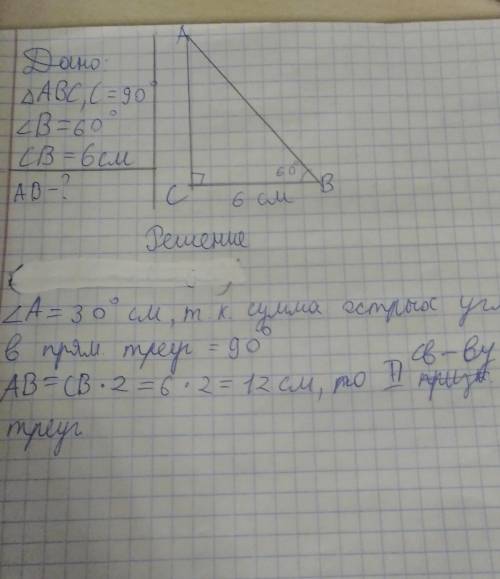 Дано:
△ABC, C=90°
∠B=60°
CB=6см
AB-?
A
C
B
60°
6 см
Решение
∠A=30° см, т к. сумма острых угл
в прям. треуг = 90°
AB=CB·2=6·2=12см, то II
св-ву
треуг